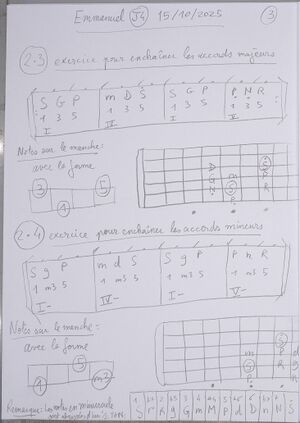 Emmanuel J4 15/10/2025 3
2.3 exercice pour enchaîner les accords majeurs
S G P m D S S G P P N R
1 3 5 1 3 5 1 3 5 1 3 5
I IV I V
Notes sur le manche:
avec la forme
3 5
1
2.4 exercice pour enchaîner les accords mineurs
S g P m d S S g P P n R
1 m3 5 1 m3 5 1 m3 5 1 m3 5
I- IV- I- V-
Notes sur le manche:
avec la forme
5
1 m3
Remarque: Les notes en minuscule
S r R g G m M P d D n N S